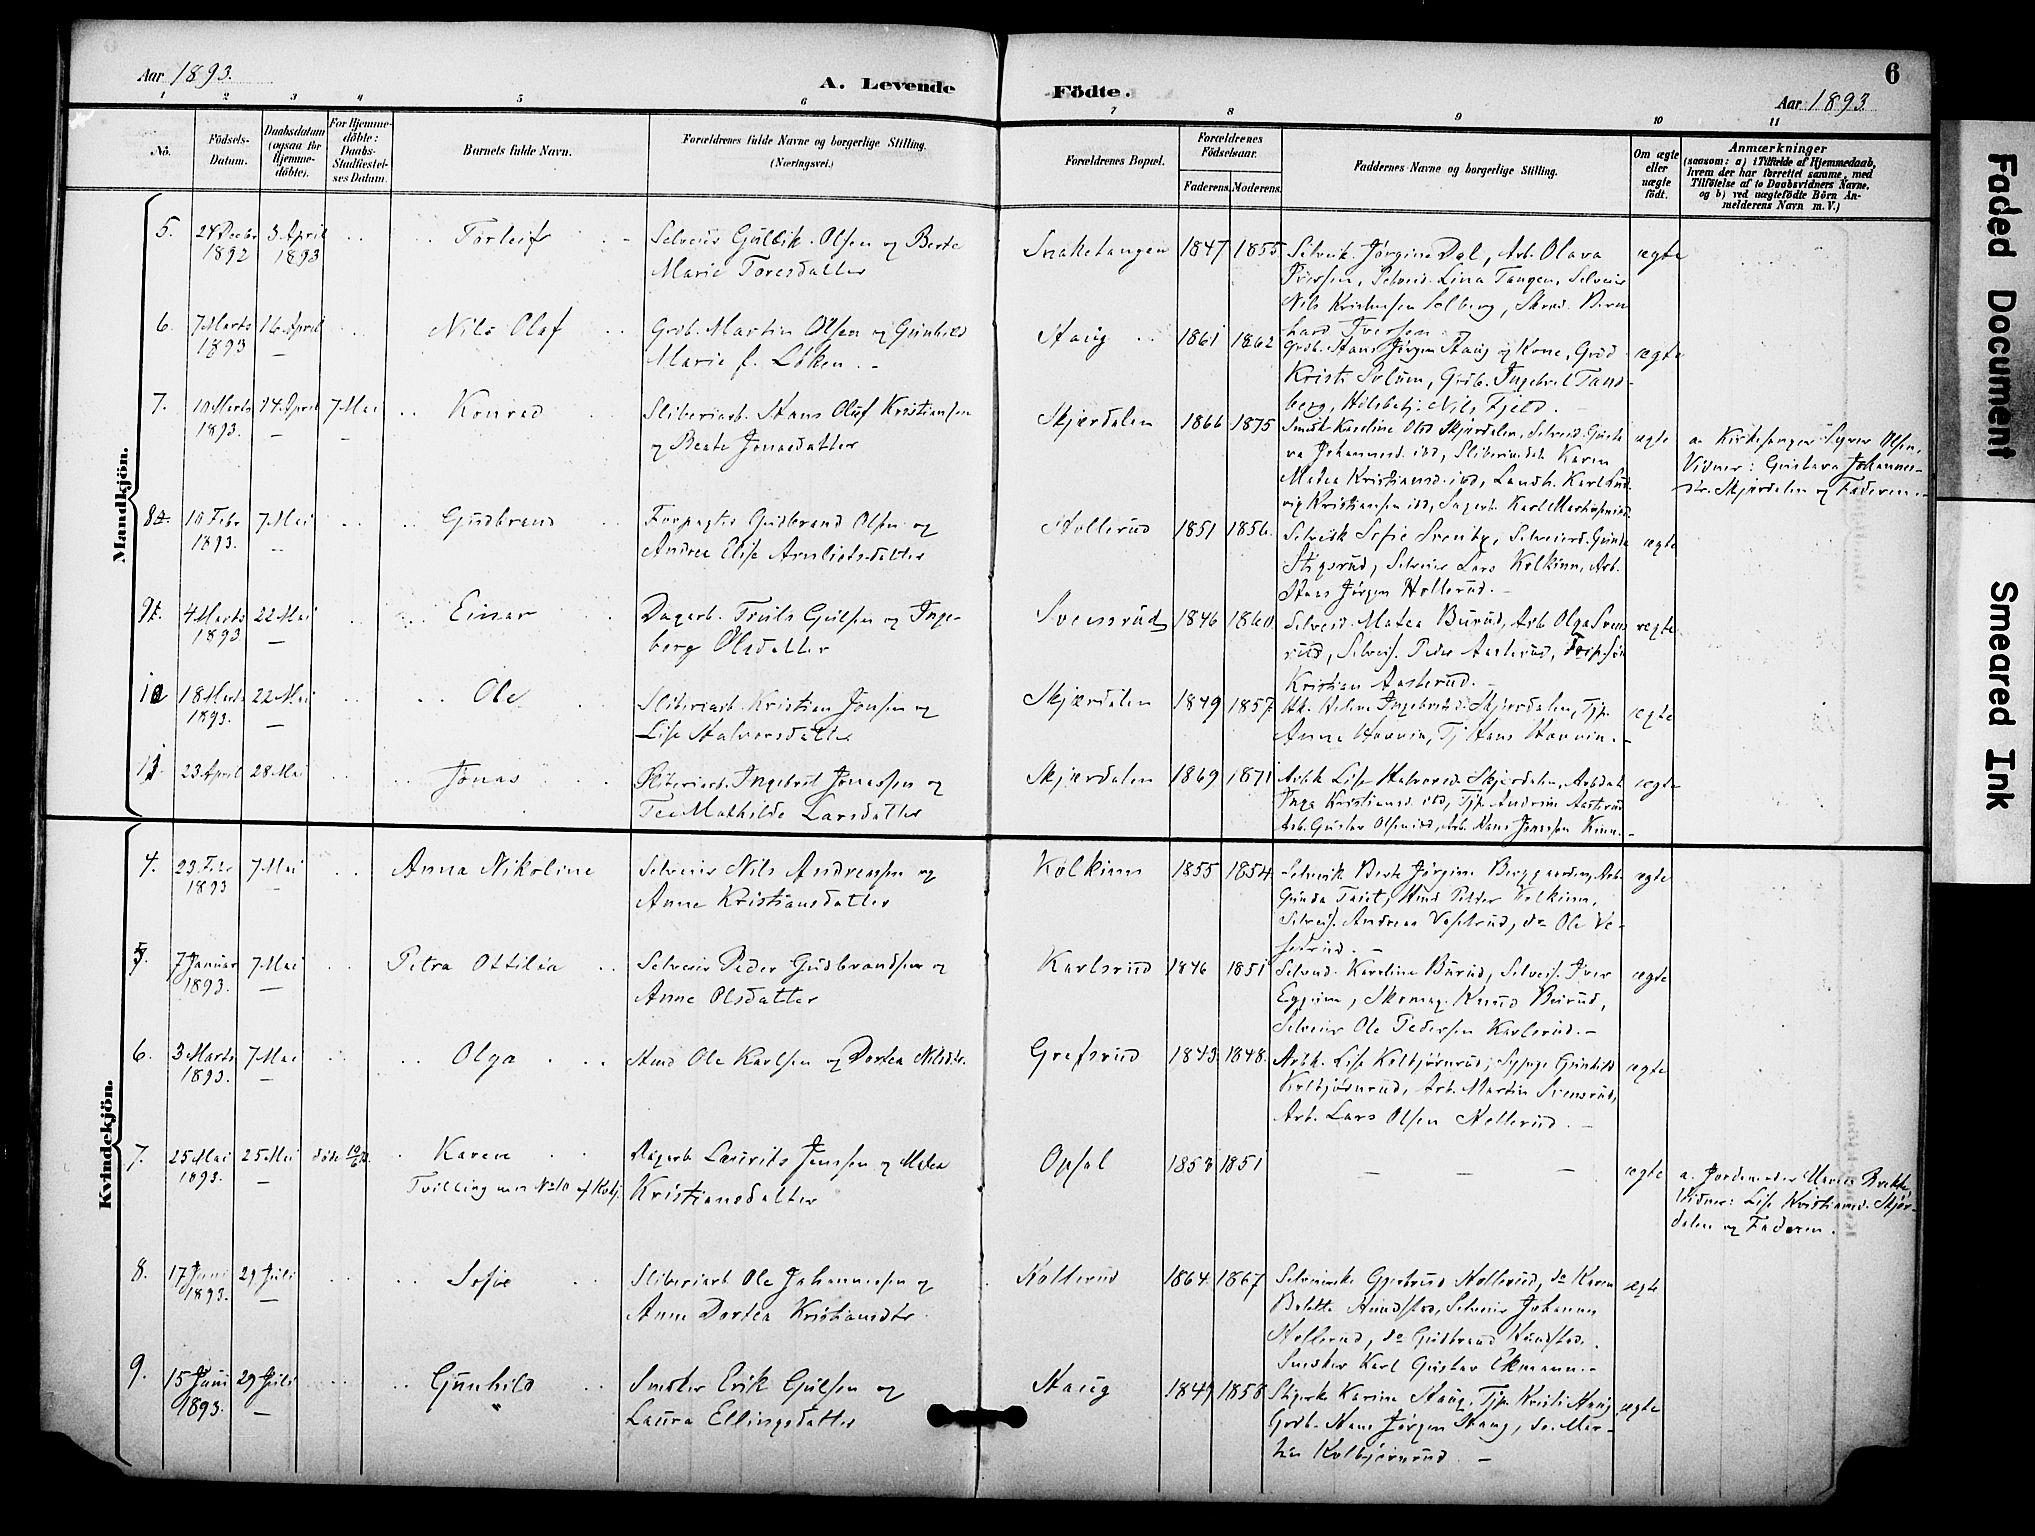 Aar 1893.
A. Levende
Födte.
6
Aar 1893
1 2 3 4 5 6 7 8 9 10 11
No.
Födsels-
Datum.
Daabsdatum
(ogsaa for
Hjemme-
döbte).
For Hjemme-
döbte:
Daabs-
Stadfæstel-
ses Datum.
Barnets fulde Navn.
Forældrenes fulde Navne og borgerlige Stilling.
(Næringsvei.)
Forældrenes Bopæl.
Forældrenes
Födselsaar.
Faderens. Moderens.
Faddernes Navne og borgerlige Stilling.
Om ægte
eller
uægte
födt.
Anmærkninger
(saasom: a) i Tilfælde af Hjemmedaab,
hvem der har forrettet samme, med
Tilföielse af to Daabsvidners Navne,
og b) ved uægtefödte Börn An-
melderens Navn m. V.)
Mandkjön.
5. 24 Decbr 3. April Torleif Selveier Gulbik Olsen og Berte Snaketangen 1847 1855 Selveik. Jørgine Dal, Arb. Olava ægte
1892 1893 Marie Toresdatter Iversen, Selveid. Lina Tangen, Selveier
Nils Kristensen Solberg, Skræd. Bern
hard Iversen
6. 7 Marts 16 April Nils Olaf Grdb. Martin Olsen og Gunhild Haug 1861 1862 Grdb. Hans Jørgen Haug og Kone, Grdd. ægte
1893 — Marie f. Løken. Kristi Solum, Grdb. Ingebret Tand-
berg, Nils Fjeld. —
7. 10 Marts 14 April 7 Mai Konrad Sliberiarb. Hans Oluf Kristiansen Skjærdalen 1866 1875 Karoline Olsd Skjærdalen, Selveid. Gusta ægte a. Kirkesanger Syver Olsen,
1893. — — og Beate Jonasdatter va Johannesd. ibd, Karen Vidner: Gustava Johannes-
Matea Kristiansd. ibd, Landh. Karl Lud dtr. Skjærdalen og Faderen.
vig Kristiansen ibd, Sagarb. Karl
8. 10 Febr 7 Mai Gudbrand Forpagter Gudbrand Olsen og Hollerud 1851 1856. Selveik Sofie Svenby, Selveierd. Gunda ægte
1893. — Andrea Elise Arnlietsdatter Stigsrud, Selveier Lars Kolkinn, Arb.
Hans Jørgen Hollerud. —
9. 4 Marts 22 Mai Einar Dagarb. Truls Gulsen og Inge- Svensrud 1846 1860. Selveid. Matea Burud, Arb. Olga Svens ægte
1893 — berg Olsdatter rud, Selveis. Peder Aasterud,
Kristian Aasterud. —
10 18 Marts 22 Mai Ole Sliberiarb. Kristian Jonsen og Skjærdalen 1849 1857. Helene Ingebretsd. Skjærdalen, Tjp. ægte
1893. — Lise Halvorsdatter Anne Harvin, Tj. Hans Harvin. —
11. 23 April 28 Mai Jonas Sliberiarb. Ingebret Jonassen og Skjærdalen 1869 1871 Arbk. Lise Halvorsd. Skjærdalen, Arbdat. ægte
Tea Mathilde Larsdatter Inga Kristiansd. ibd, Tjp. Andrine Aasterud
Arb. Gustav Olsen ibd, Arb. Hans Jonassen Kinn. —
Kvindekjön.
4. 23 Febr 7 Mai Anna Nikoline Selveier Nils Andreassen og Kolkinn 1855 1854. Selveik Berte Jørgine Berggaarden, Arb. ægte
1893 — Anne Kristiansdatter Gunda Taiet, Hmd Peder Kolkinn,
Selveis. Andreas Veselrud, do Ole Ve-
selrud. —
5. 7 Januar 7 Mai Petra Ottilia Selveier Peder Gudbrandsen og Karlsrud 1846 1851 Selveid. Karoline Burud, Selveis. Iver ægte
1893. — Anne Olsdatter Eggium, Skomag. Knud Burud,
Selveier Ole Pedersen Karlsrud. —
6. 3 Marts 7 Mai Olga Hmd Ole Karlsen og Dortea Nilsdtr. Grefsrud 1843. 1848. Arbk. Lise Kolbjørnrud, Sypige Gunhild ægte
1893. — Kolbjørnrud, Arb. Martin Svensrud,
Arb. Lars Olsen Hollerud. —
7. 25 Mai 25 Mai døde 10/6 Karen Dagarb Laurits Jensen og Matea Opsal 1853 1851 — — — ægte a. Jordemoder Maren Brekke
1893. — Tvilling med No 10 af Kvkj. Kristiansdatter Vidner: Lise Kristiansd. Skjær-
dalen og Faderen.
8. 17 Juni 29 Juli Sofie Sliberiarb Ole Johannessen og Hollerud 1864 1867 Selveierske Gjertrud Hollerud, do Karen ægte
1893. — Anne Dortea Kristiansdtr. Bolette Hundstad, Selveier Johannes
Hollerud, do Gudbrand Hundstad.
Smester Karl Gustav Ekmann. —
9. 15 Juni 29 Juli Gunhild Smster Erik Gulsen og Haug 1849 1858 Karine Haug, Tjp. Kristi Haug, ægte
1893. — Laura Ellingsdatter Grdb. Hans Jørgen Haug, do. Mar-
tin Kolbjørnrud. —
Faded Document
Smeared Ink